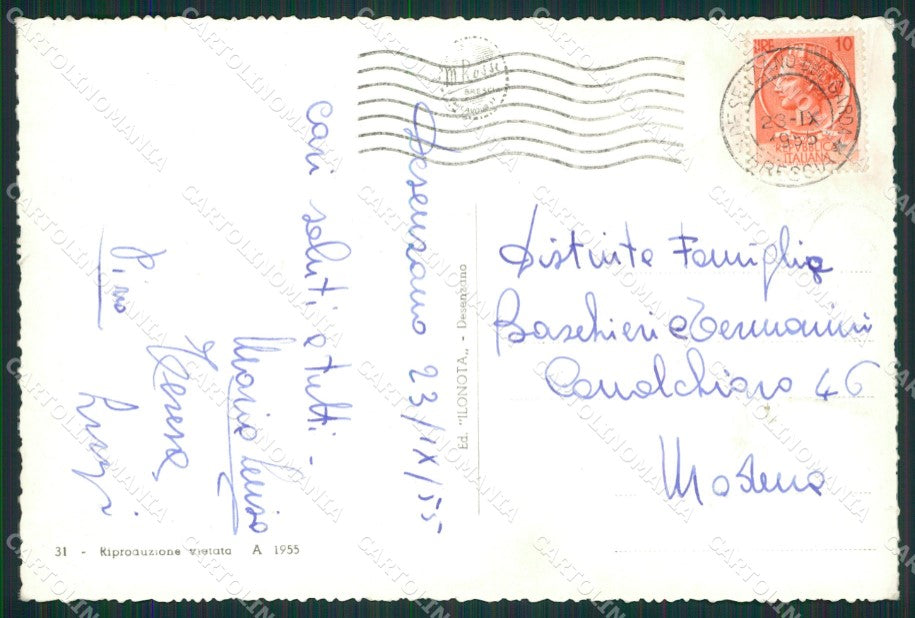 Desenzano 23/IX/55
Cari saluti a tutti -
Maria Luisa
Teresa,
Luigi
Pino
Distinta Famiglia
Baschieri e Termanini
Canalchiaro 46
Modena
Ed. "ILONOTA,, - Desenzano
31 - Riproduzione vietata A 1955
LIRE 10
REPUBBLICA
ITALIANA
DESENZANO DEL GARDA
23-IX
BRESCIA
CARTOLINOMANIA